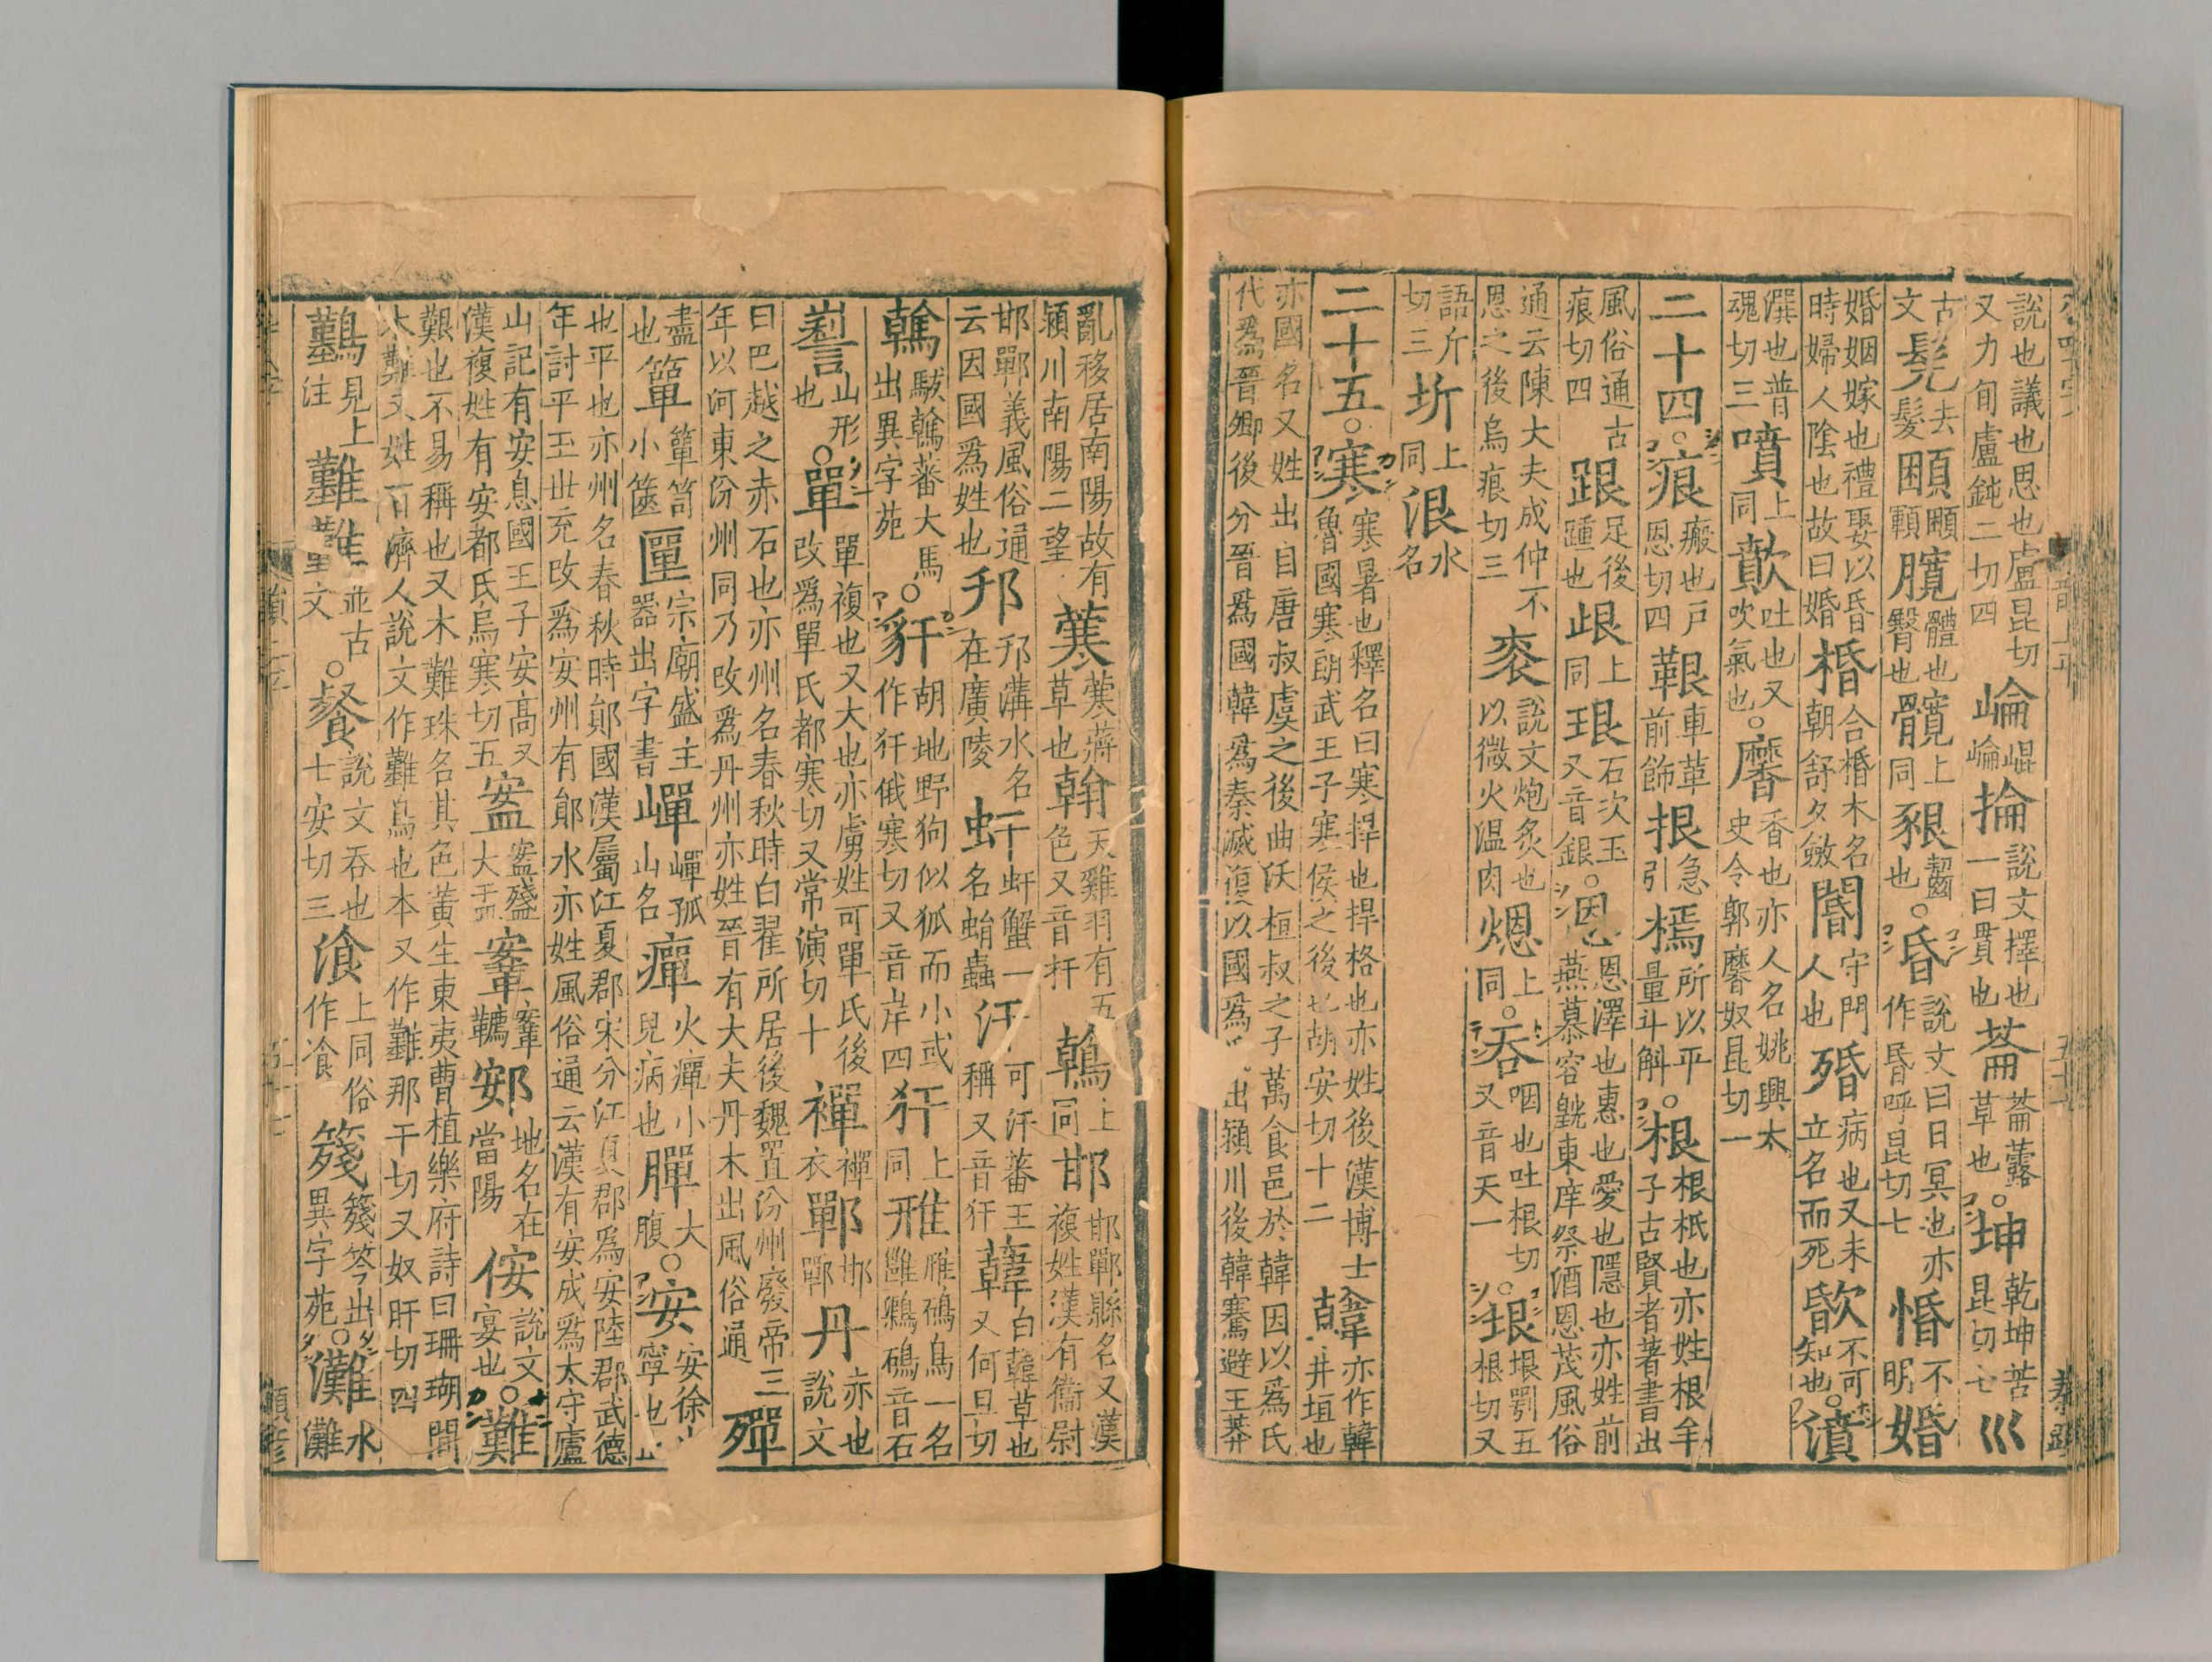 韻上平 五十六 秦顯
說也議也思也盧昆切又力旬盧鈍二切四崘崐崘掄說文擇也一曰貫也菕菕蕗草也○坤乾坤苦昆切七巛
古文髡去髮顐臗體也臀也髖上同豤齧也○昬說文曰日冥也亦作昏呼昆切七惛不明婚
婚姻嫁也禮娶以昏時婦人陰也故曰婚棔合棔木名朝舒夕斂閽守門人也殙病也又未立名而死㱪不可知也○濆
潠也普魂切三噴上同歕吐也又吹氣也○黁香也亦人名姚興太史令郭黁奴昆切一
二十四○痕瘢也戶恩切四䪰車革前飾拫急引㮯所以平量斗斛○根根柢也亦姓根牟子古賢者著書出
風俗通古痕切四跟足後踵也䟘上同珢石次玉又音銀○恩恩澤也惠也愛也隱也亦姓前燕慕容皝東庠祭酒恩茂風俗
通云陳大夫成仲不恩之後烏痕切三衮說文炮炙也以微火溫肉煾上同○吞咽也吐根切又音天一○垠垠堮五根切又
語斤切三圻上同泿水名
二十五○寒寒暑也釋名曰寒捍也捍格也亦姓後漢博士魯國寒朗武王子寒侯之後也胡安切十二韓亦作韓井垣也
亦國名又姓出自唐叔虞之後曲沃桓叔之子萬食邑於韓因以爲氏代爲晉卿後分晉爲國韓爲秦滅復以國爲出潁川後韓騫避王莽
亂移居南陽故有潁川南陽二望㶕蔊草也翰天雞羽有五色又音扞鶾上同邯邯鄲縣名又漢複姓漢有衞尉
邯鄲義風俗通云因國爲姓也邗邗溝水名在廣陵虷虷蟹一名蛸蟲汗可汗蕃王稱又音汗䓿白䓿草也又何旦切
䮧馼䮧蕃大馬出異字苑○豻胡地野狗似狐而小或作犴俄寒切又音岸四犴上同雃雃鳽鳥一名雝鸈鳽音石
山形也○單單複也又大也亦虜姓可單氏後改爲單氏都寒切又常演切十襌襌衣鄲邯鄲丹亦也說文
曰巴越之赤石也亦州名春秋時白翟所居後魏置汾州廢帝三年以河東汾州同乃改爲丹州亦姓晉有大夫丹木出風俗通殫
盡也簞簞笥小篋匰宗廟盛主器出字書嘽嘽孤山名癉火癉小兒病也𦡀大腹○安安徐寧也
也平也亦州名春秋時鄖國漢屬江夏郡宋分江夏郡爲安陸郡武德年討平王世充改爲安州有鄖水亦姓風俗通云漢有安成爲太守廬
山記有安息國王子安髙又漢複姓有安都氏烏寒切五盦盦盞大盂鞌鞌韉䢿地名在當陽侒說文宴也○難
艱也不易稱也又木難珠名其色黃生東夷曹植樂府詩曰珊瑚閒木難又姓百濟人說文作鷬鳥也本又作難那干切又奴肝切四
鷬見上注難並古文○餐說文吞也七安切三湌上同俗作飡㦮出異字苑○灘水灘